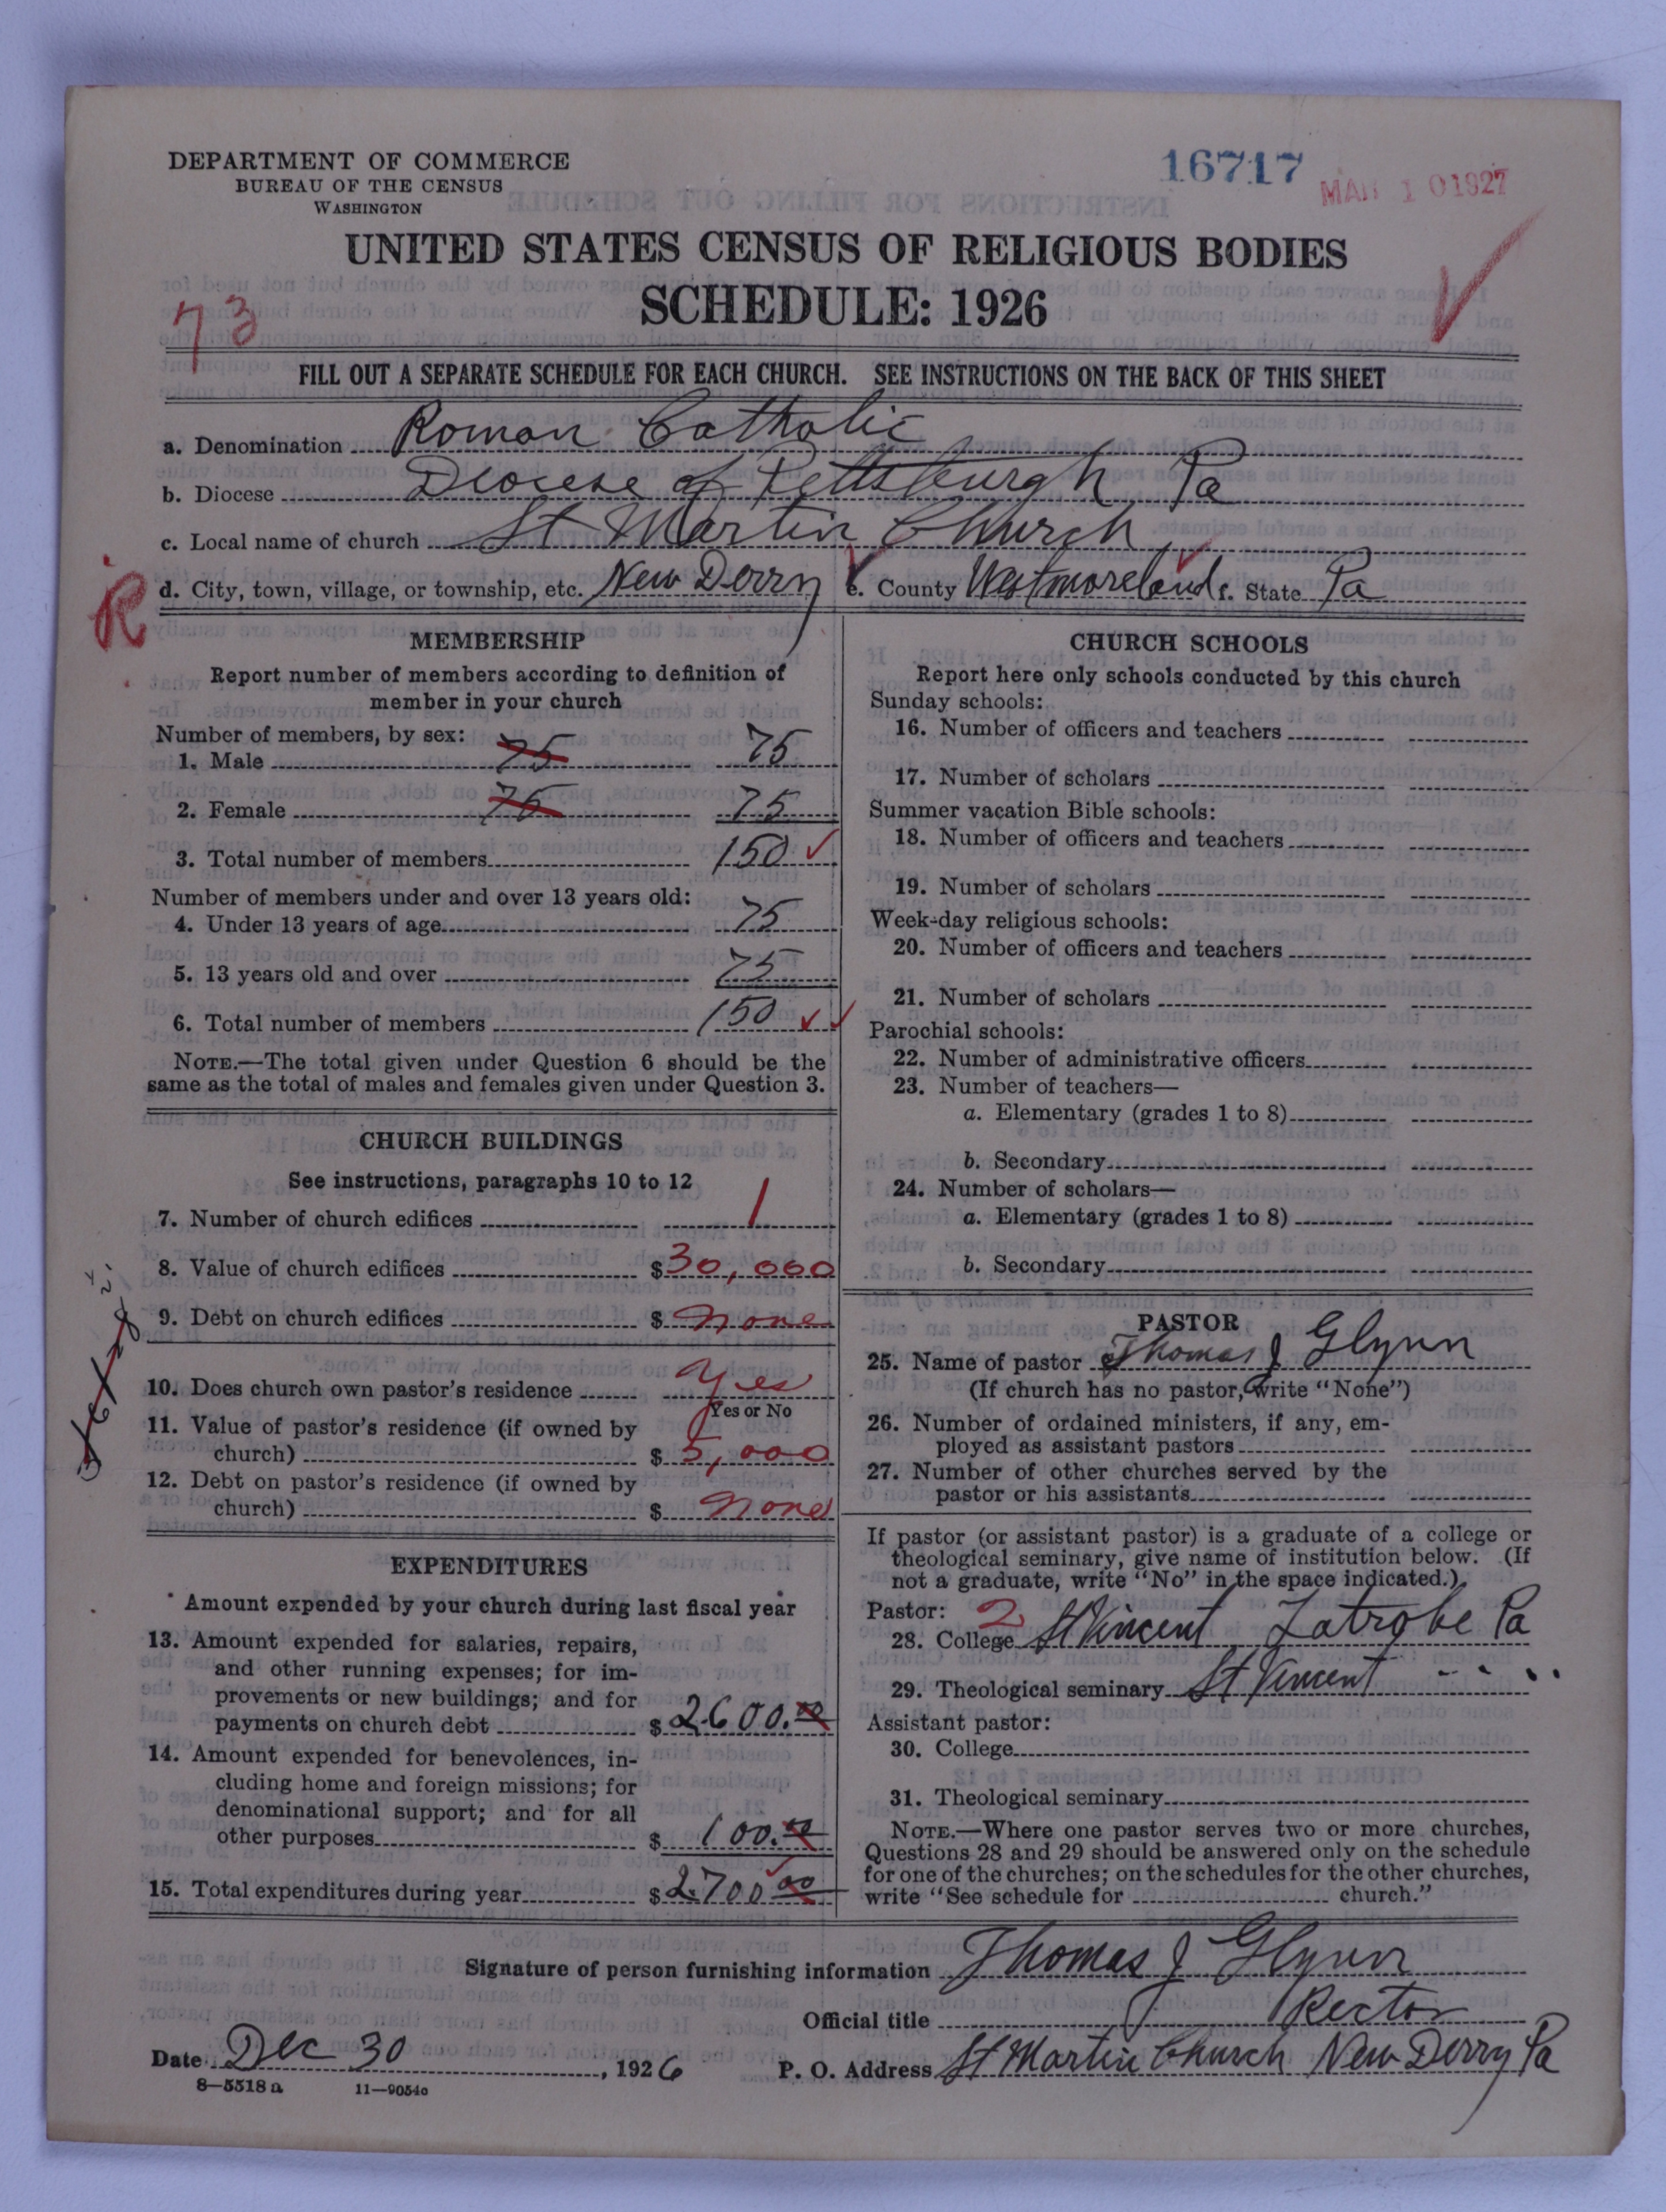 DEPARTMENT OF COMMERCE
BUREAU OF THE CENSUS
WASHINGTON
16717
MAR 10 1927
UNITED STATES CENSUS OF RELIGIOUS BODIES
SCHEDULE: 1926
73
FILL OUT A SEPARATE SCHEDULE FOR EACH CHURCH. SEE INSTRUCTIONS ON THE BACK OF THIS SHEET
a. Denomination Roman Catholic
b. Diocese Diocese of Pittsburgh Pa
c. Local name of church St Martin Church
R
d. City, town, village, or township, etc. New Derry e. County Westmoreland f. State Pa
MEMBERSHIP
Report number of members according to definition of
member in your church
Number of members, by sex:
1. Male 75 75
2. Female 75 75
3. Total number of members 150
Number of members under and over 13 years old:
4. Under 13 years of age 75
5. 13 years old and over 75
6. Total number of members 150
NOTE.—The total given under Question 6 should be the
same as the total of males and females given under Question 3.
CHURCH BUILDINGS
See instructions, paragraphs 10 to 12
7. Number of church edifices 1
8. Value of church edifices $30,000
9. Debt on church edifices $ None
10. Does church own pastor's residence Yes
Yes or No
11. Value of pastor's residence (if owned by
church) $ 5,000
12. Debt on pastor's residence (if owned by
church) $ None
EXPENDITURES
Amount expended by your church during last fiscal year
13. Amount expended for salaries, repairs,
and other running expenses; for im-
provements or new buildings; and for
payments on church debt $ 2600.00
14. Amount expended for benevolences, in-
cluding home and foreign missions; for
denominational support; and for all
other purposes $ 100.00
15. Total expenditures during year $ 2700 00
CHURCH SCHOOLS
Report here only schools conducted by this church
Sunday schools:
16. Number of officers and teachers
17. Number of scholars
Summer vacation Bible schools:
18. Number of officers and teachers
19. Number of scholars
Week-day religious schools:
20. Number of officers and teachers
21. Number of scholars
Parochial schools:
22. Number of administrative officers
23. Number of teachers—
a. Elementary (grades 1 to 8)
b. Secondary
24. Number of scholars—
a. Elementary (grades 1 to 8)
b. Secondary
PASTOR
25. Name of pastor Thomas J Glynn
(If church has no pastor, write "None")
26. Number of ordained ministers, if any, em-
ployed as assistant pastors
27. Number of other churches served by the
pastor or his assistants
If pastor (or assistant pastor) is a graduate of a college or
theological seminary, give name of institution below. (If
not a graduate, write "No" in the space indicated.)
Pastor: 2
28. College St Vincent Latrobe Pa
29. Theological seminary St Vincent
Assistant pastor:
30. College
31. Theological seminary
NOTE.—Where one pastor serves two or more churches,
Questions 28 and 29 should be answered only on the schedule
for one of the churches; on the schedules for the other churches,
write "See schedule for church."
Signature of person furnishing information Thomas J Glynn
Official title Rector
Date Dec 30, 1926 P. O. Address St Martin Church New Derry Pa
8—5518 a 11—9054a